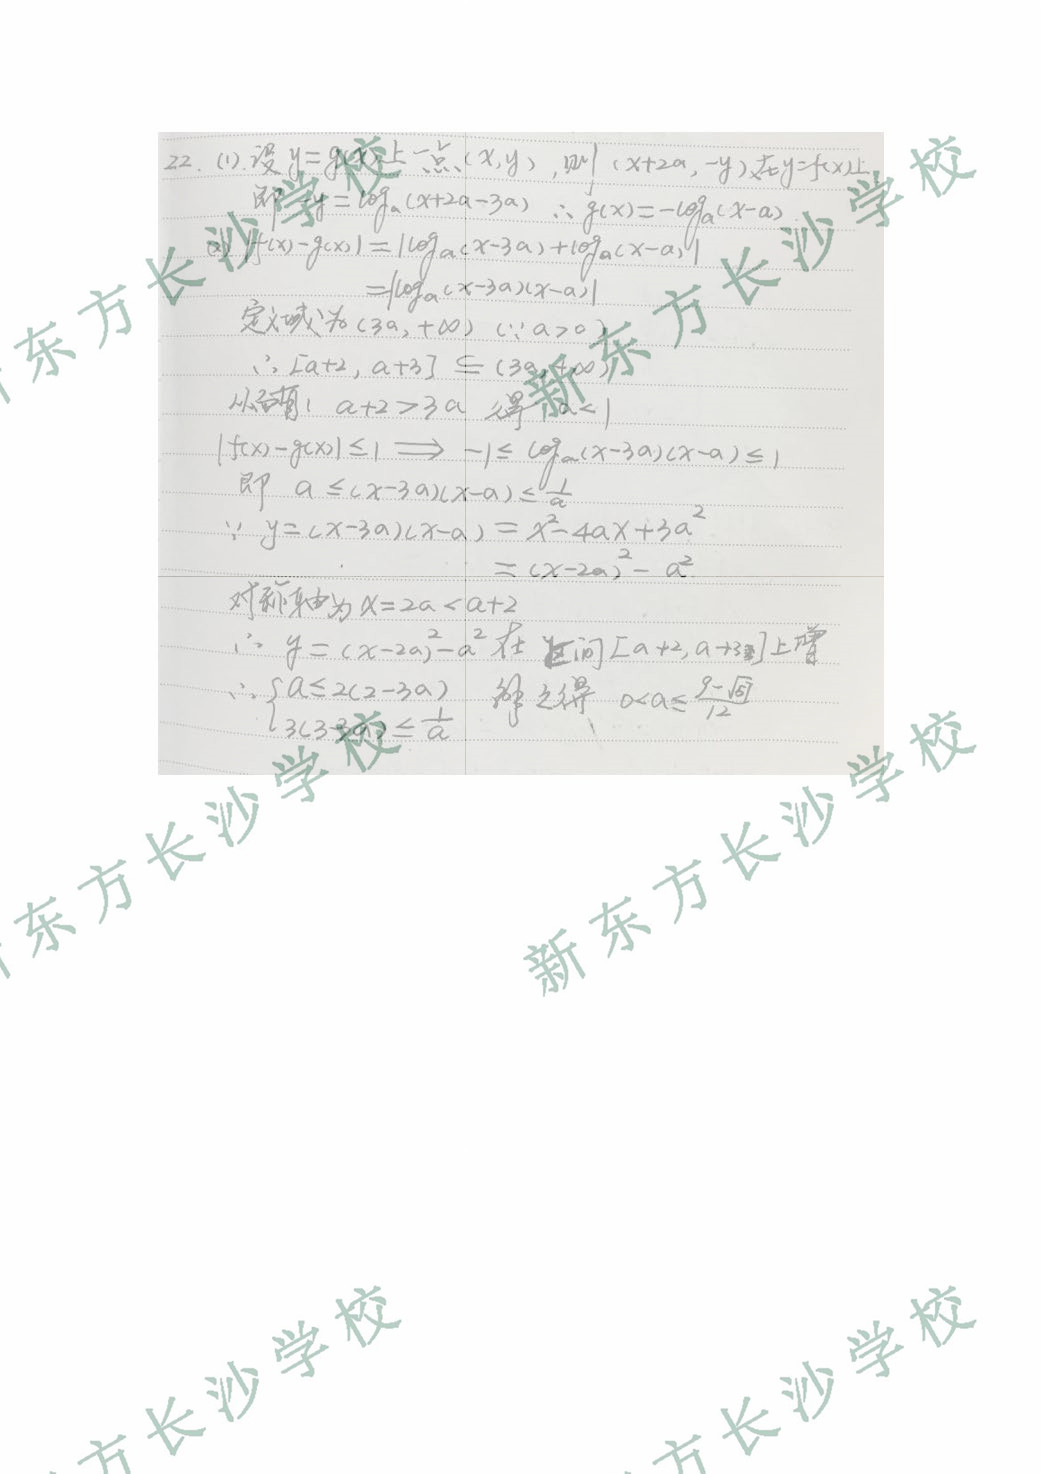 22. (1). 设 y=g(x) 上一点 (x,y), 则 (x+2a, -y) 在 y=f(x) 上
即 -y=log_a(x+2a-3a) ∴ g(x)=-log_a(x-a)
(2) |f(x)-g(x)|=|log_a(x-3a)+log_a(x-a)|
=|log_a(x-3a)(x-a)|
定义域为 (3a, +∞) (∵ a>0)
∴ [a+2, a+3] ⊆ (3a, +∞)
a+2>3a 得 a<1
|f(x)-g(x)|≤1 ⟹ -1≤log_a(x-3a)(x-a)≤1
即 a≤(x-3a)(x-a)≤1/a
∵ y=(x-3a)(x-a)=x²-4ax+3a²
=(x-2a)²-a²
对称轴为 x=2a<a+2
∴ y=(x-2a)²-a² 在 区间 [a+2, a+3] 上增
∴ { a≤2(2-3a) 解之得 0<a≤(9-√57)/12
3(3-3a)≤1/a
新东方长沙学校
新东方长沙学校
新东方长沙学校
新东方长沙学校
东方长沙学校
方长沙学校